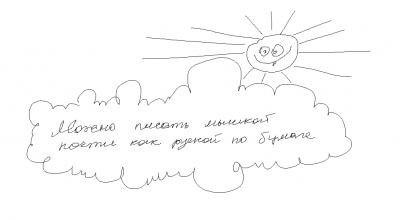 Можно писать мышкой
почти как рукой по бумаге